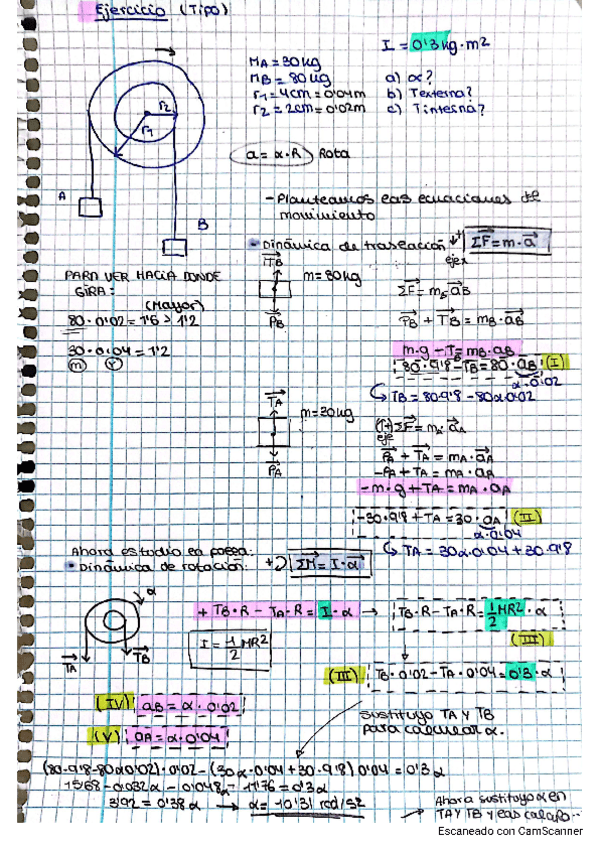 Ejercicio (Tipo)
I = 0'3 kg·m2
MA = 30 kg
MB = 80 kg
r1 = 4cm = 0'04m
r2 = 2cm = 0'02m
a) α?
b) Texterna?
c) Tinterna?
r2
r1
a = α·R Rota
A
B
- Planteamos las ecuaciones de
movimiento
- Dinámica de traslación + ΣF = m·a
eje x
PARA VER HACIA DONDE
GIRA:
(Mayor)
80·0'02 = 1'6 > 1'2
30·0'04 = 1'2
m r
TB
m = 80kg
PB
ΣF = mB aB
PB + TB = mB·aB
m·g - TB = mB·aB
80·9'8 - TB = 80·aB (I)
α·0'02
TB = 80·9'8 - 80α0'02
TA
m = 30kg
PA
(↑+) ΣF = mA·aA
eje
PA + TA = mA·aA
-PA + TA = mA·aA
-m·g + TA = mA·aA
-30·9'8 + TA = 30·aA (II)
α·0'04
TA = 30α·0'04 + 30·9'8
Ahora estudio la polea:
• Dinámica de rotación: + ΣM = I·α
α
TA
TB
+ TB·R - TA·R = I·α → TB·R - TA·R = 1/2 MR2·α
(III)
I = 1/2 MR2
(III) TB·0'02 - TA·0'04 = 0'3·α
(IV) aB = α·0'02
(V) aA = α·0'04
Sustituyo TA y TB
para calcular α.
(80·9'8-80α0'02)·0'02-(30α·0'04+30·9'8)0'04 = 0'3α
15'68 - 0'032α - 0'048α - 11'76 = 0'3α
3'92 = 0'38α → α = 10'31 rad/s2
Ahora sustituyo α en
TA y TB y las calculo...
Escaneado con CamScanner